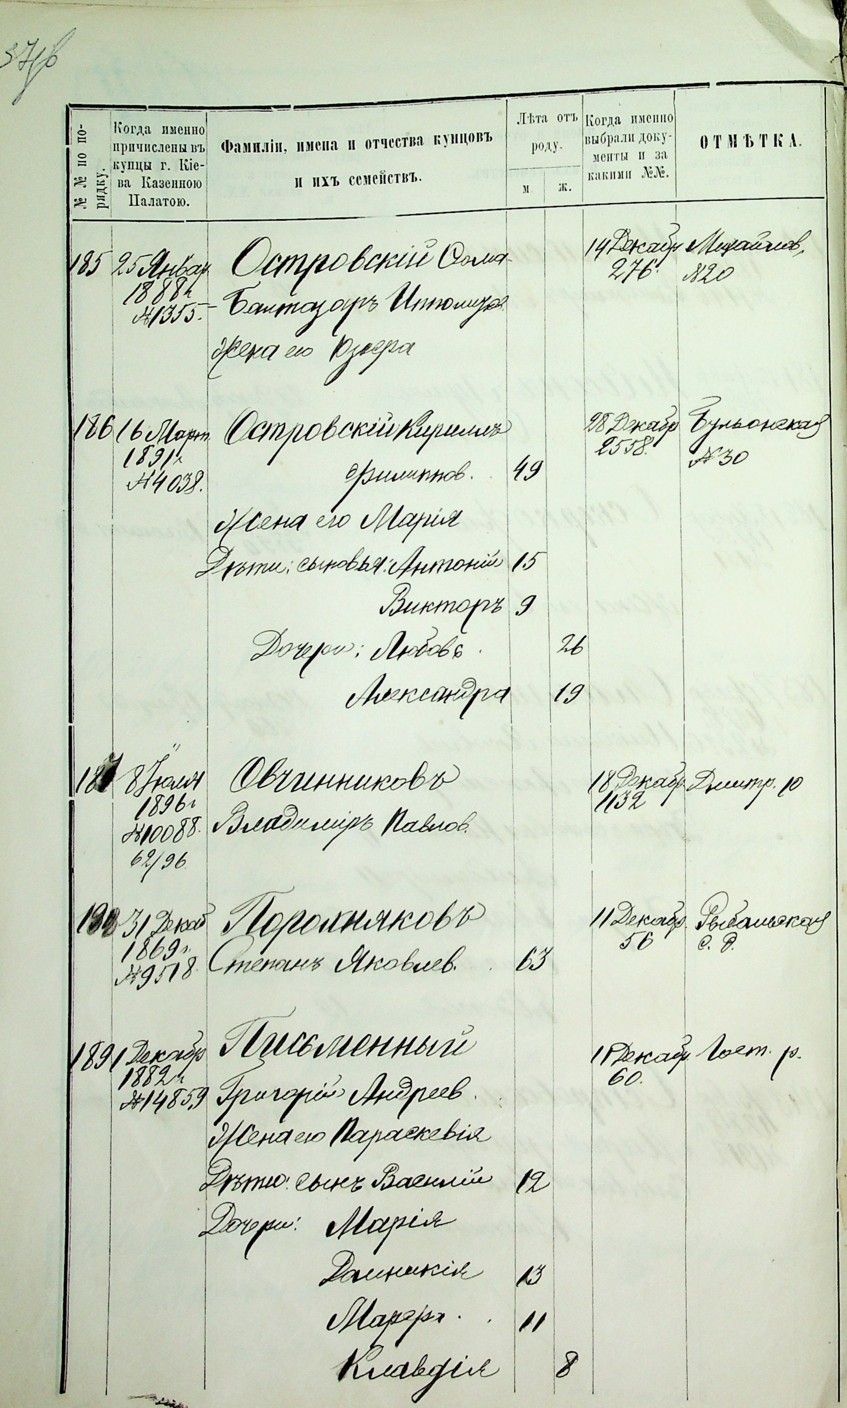 № № по по-
рядку.
Когда именно
причислены въ
купцы г. Кіе-
ва Казенною
Палатою.
Фамиліи, имена и отчества купцовъ
и ихъ семействъ.
Лѣта отъ
роду.
м.
ж.
Когда именно
выбрали доку-
менты и за
какими №№.
ОТМѢТКА.
185 25 Январ Островскій Ѳома 14 Декабр Михайлов,
1888 г. 276 №20
№1355. Балтазаръ
Жена его Юзефа
186 16 Март Островскій Кириллъ 28 Декабр Бульонская
1891 г. 2558. №30
№4038. Филиппов. 49
Жена его Марія
Дѣти: сыновья: Антоній 15
Викторъ 9
Дочери: Любовь 26
Александра 19
187 8 Іюля Овчинниковъ 18 Декабр Дмитр. 10
1896 г 1132
№10088. Владиміръ Павлов.
62/96
188 31 Декаб 11 Декабр Рыбальская
1869 г. 56 с. д.
№9518 Степанъ Яковлев. 63
189 1 Декабр Письменный 11 Декабр Гост. р.
1882 г. 60.
№14859 Григорій Андреев.
Жена его Параскевія
Дѣти: сынъ Василій 12
Дочери: Марія
Домникія 13
11
Клавдія 8